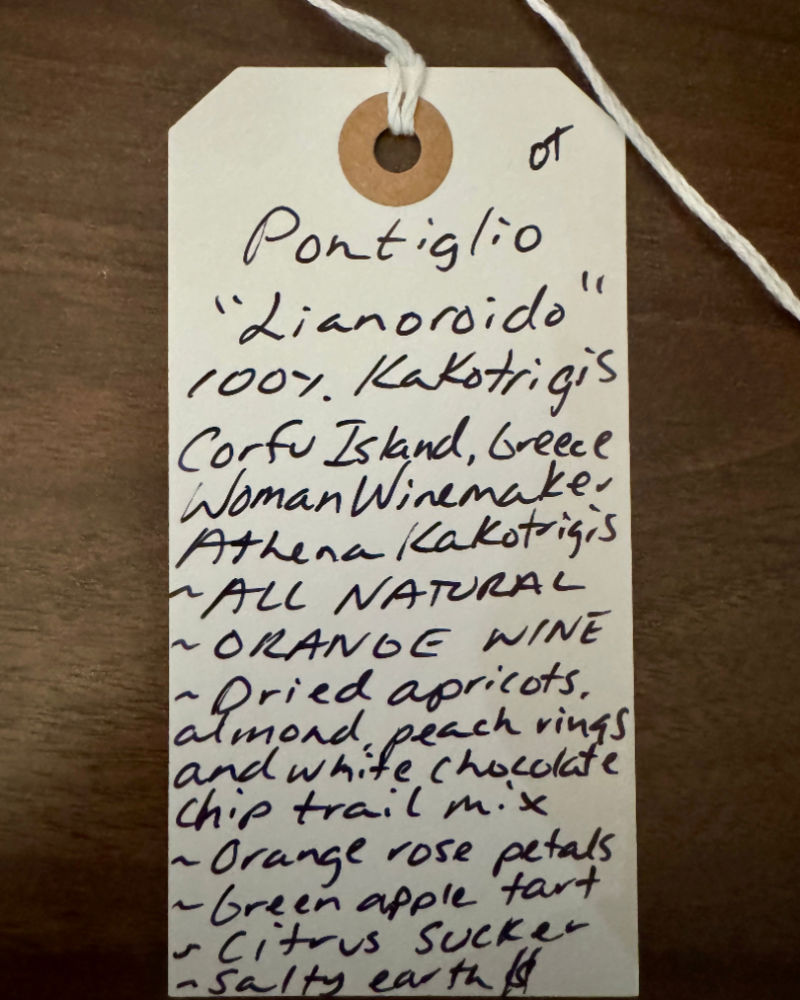 OT
Pontiglio
"Lianoroido"
100% Kakotrigis
Corfu Island, Greece
Woman Winemaker
Athena Kakotrigis
~ ALL NATURAL
~ ORANGE WINE
~ Dried apricots,
almond, peach rings
and white chocolate
chip trail mix
~ Orange rose petals
~ Green apple tart
~ Citrus sucker
~ Salty earth